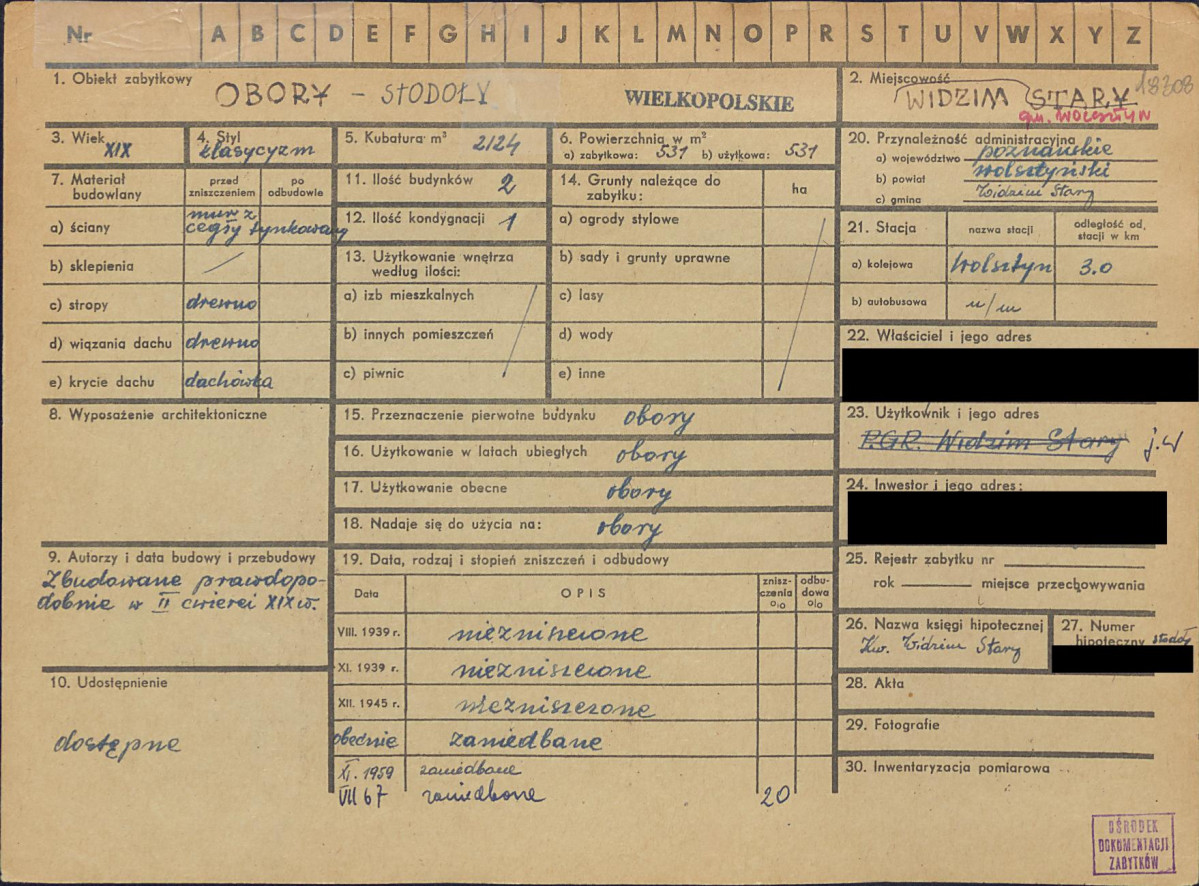 Nr A B C D E F G H I J K L M N O P R S T U V W X Y Z
1. Obiekt zabytkowy
OBORY – STODOŁY
WIELKOPOLSKIE
2. Miejscowość
18308
WIDZIM STARY
gm. WOLSZTYN
3. Wiek
XIX
4. Styl
klasycyzm
5. Kubatura m³
2124
6. Powierzchnia w m²
a) zabytkowa: 531 b) użytkowa: 531
7. Materiał budowlany
przed zniszczeniem
po odbudowie
a) ściany
mur z
cegły tynkowany
b) sklepienia
c) stropy
drewno
d) wiązania dachu
drewno
e) krycie dachu
dachówka
8. Wyposażenie architektoniczne
9. Autorzy i data budowy i przebudowy
Zbudowane prawdopo-
dobnie w II ćwierci XIX w.
10. Udostępnienie
dostępne
11. Ilość budynków
2
12. Ilość kondygnacji
1
13. Użytkowanie wnętrza
według ilości:
a) izb mieszkalnych
b) innych pomieszczeń
c) piwnic
14. Grunty należące do
zabytku:
ha
a) ogrody stylowe
b) sady i grunty uprawne
c) lasy
d) wody
e) inne
15. Przeznaczenie pierwotne budynku obory
16. Użytkowanie w latach ubiegłych obory
17. Użytkowanie obecne obory
18. Nadaje się do użycia na: obory
19. Data, rodzaj i stopień zniszczeń i odbudowy
Data
OPIS
znisz-
czenia
o/o
odbu-
dowa
o/o
VIII. 1939 r. niezniszczone
XI. 1939 r. niezniszczone
XII. 1945 r. niezniszczone
obecnie zaniedbane
XI. 1959 zaniedbane
VII 67 zaniedbane 20
20. Przynależność administracyjna
a) województwo poznańskie
b) powiat wolsztyński
c) gmina Widzim Stary
21. Stacja
nazwa stacji
odległość od,
stacji w km
a) kolejowa Wolsztyn 3.0
b) autobusowa
22. Właściciel i jego adres
23. Użytkownik i jego adres
P.G.R. Widzim Stary j.w
24. Inwestor i jego adres:
25. Rejestr zabytku nr
rok miejsce przechowywania
26. Nazwa księgi hipotecznej
Kw. Widzim Stary
27. Numer
hipoteczny
28. Akta
29. Fotografie
30. Inwentaryzacja pomiarowa
OŚRODEK
DOKUMENTACJI
ZABYTKÓW